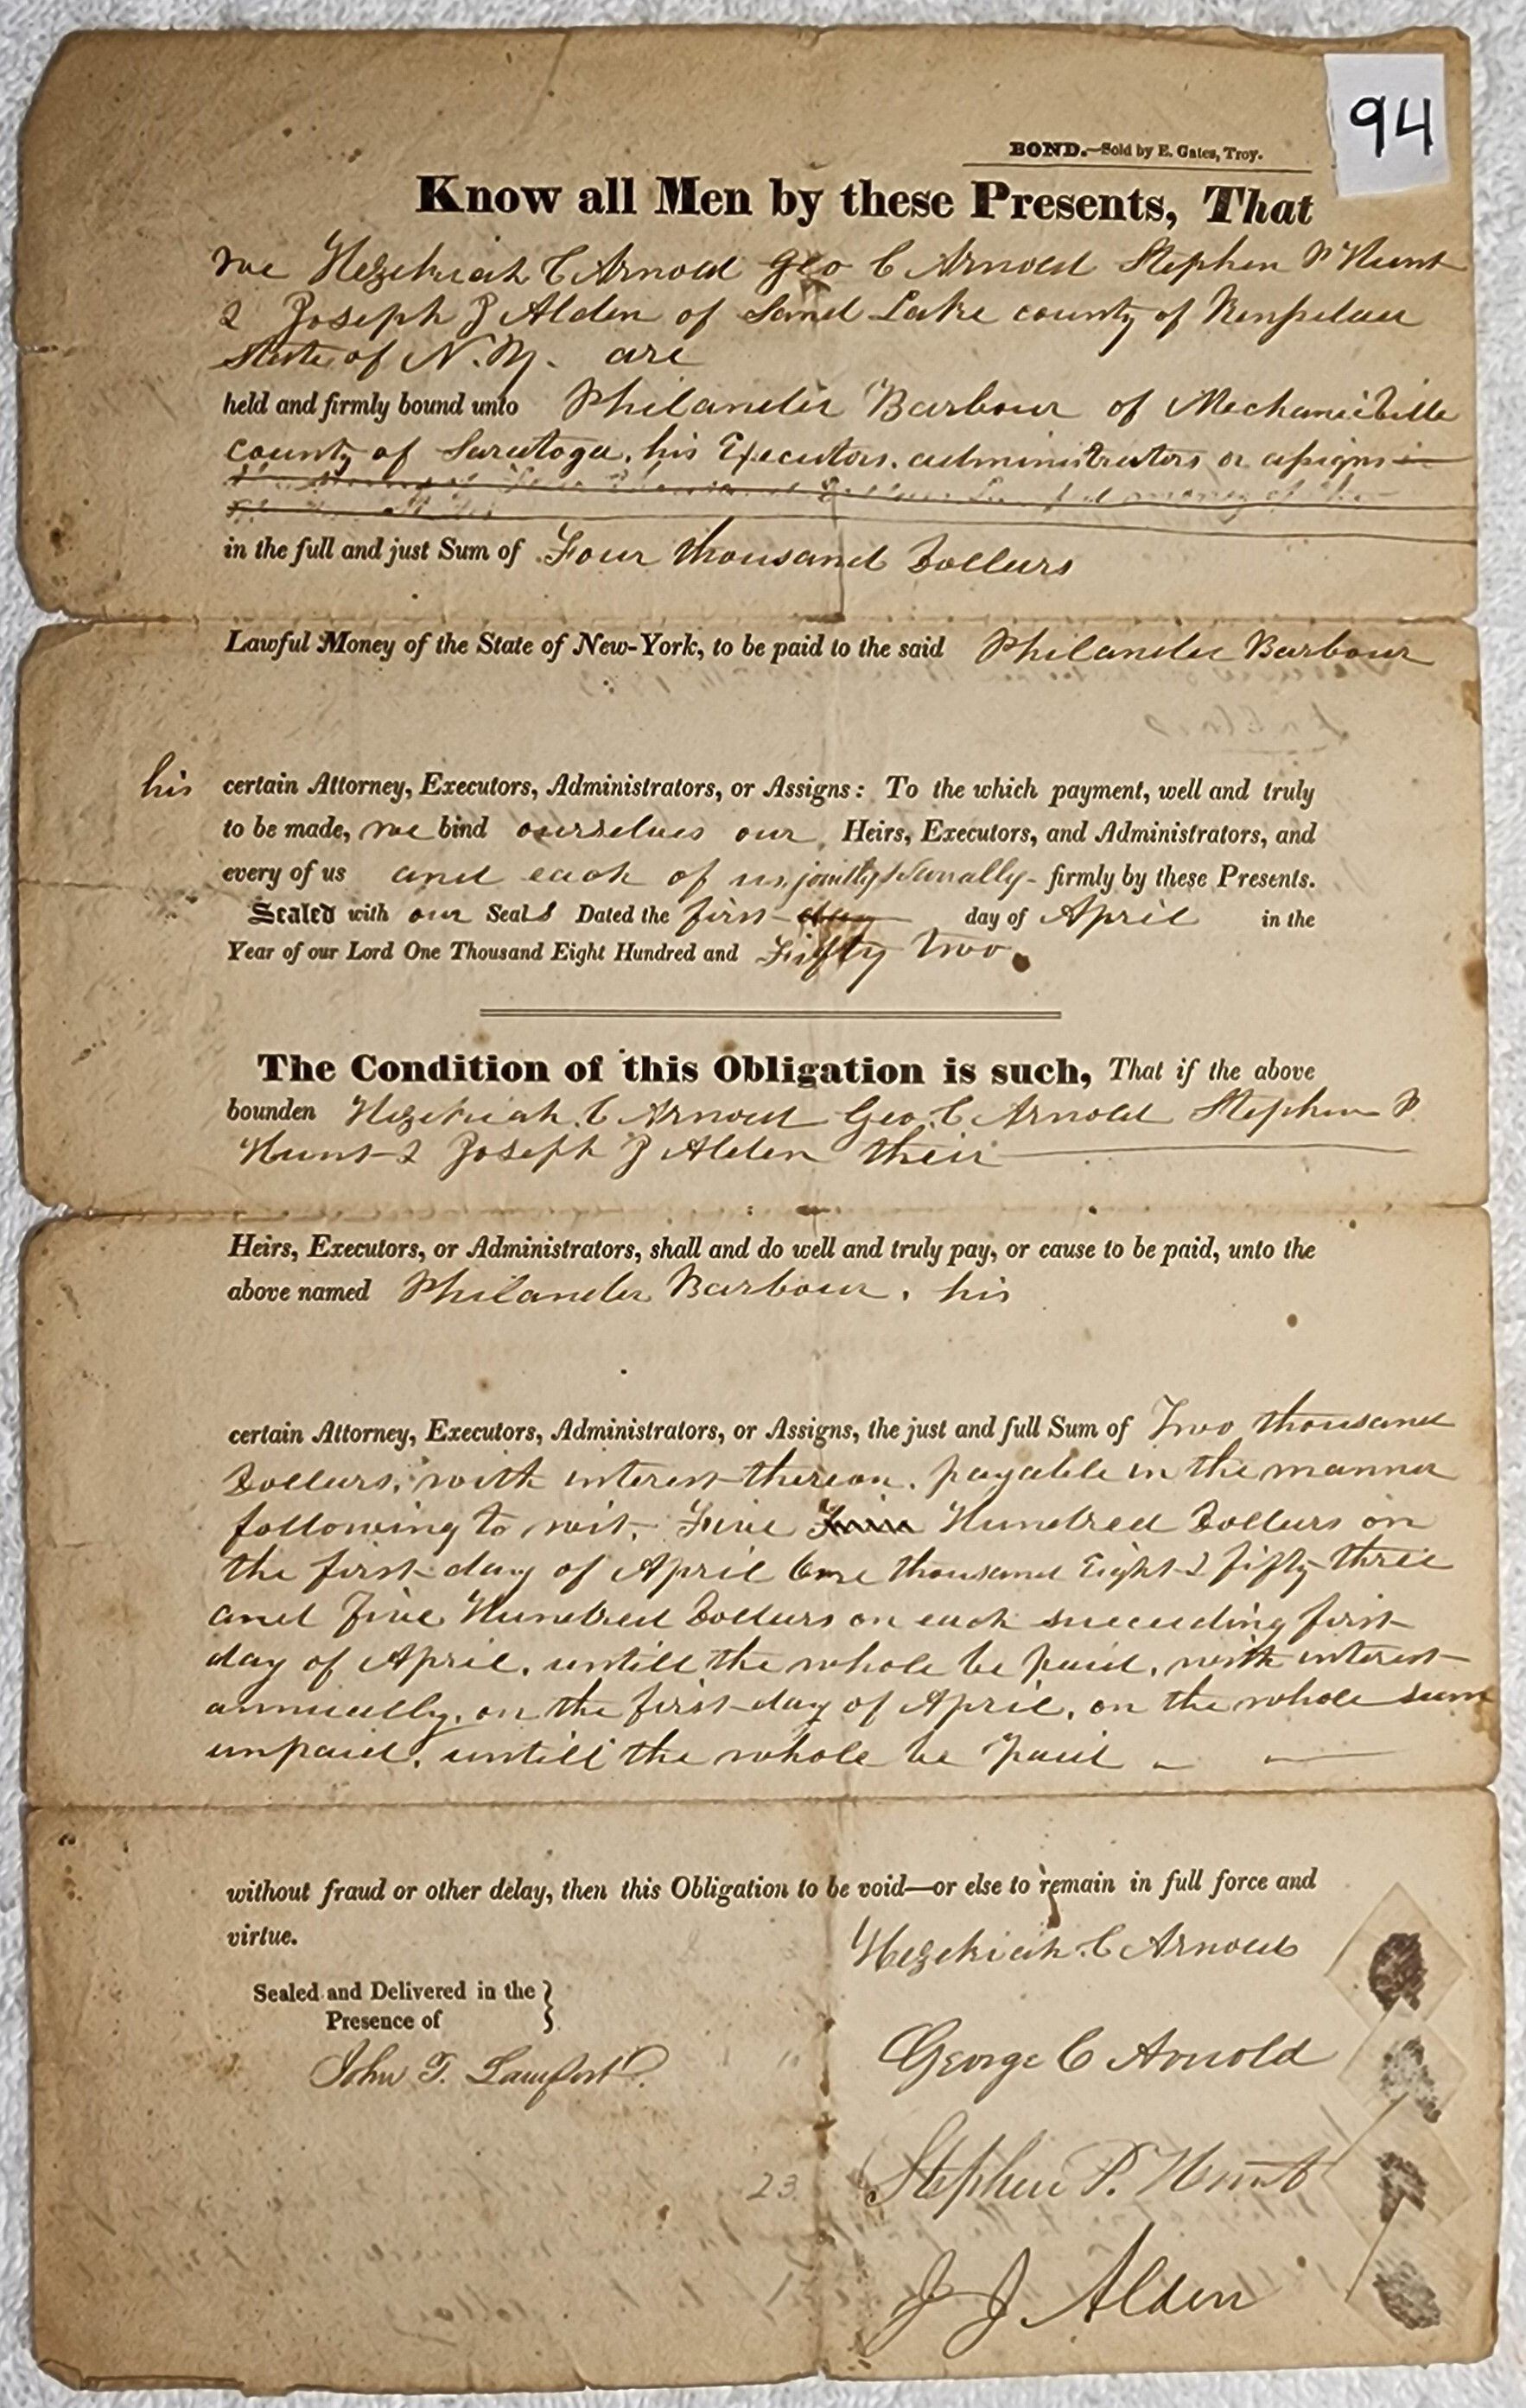 94
BOND.—Sold by E. Gates, Troy.
Know all Men by these Presents, That
we Hezekiah C Arnold Geo C Arnold Stephen P Hunt
& Joseph J Alden of Sand Lake county of Rensselaer
State of N. Y. are
held and firmly bound unto Philander Barbour of Mechanicville
county of Saratoga, his Executors, administrators or assigns
in the full and just Sum of Four thousand Dollars
Lawful Money of the State of New-York, to be paid to the said Philander Barbour
his certain Attorney, Executors, Administrators, or Assigns: To the which payment, well and truly
to be made, we bind ourselves our Heirs, Executors, and Administrators, and
every of us and each of us, jointly & severally firmly by these Presents.
Sealed with our Seals Dated the first day day of April in the
Year of our Lord One Thousand Eight Hundred and Fifty two.
The Condition of this Obligation is such, That if the above
bounden Hezekiah C Arnold Geo. C Arnold Stephen P.
Hunt & Joseph J Alden their
Heirs, Executors, or Administrators, shall and do well and truly pay, or cause to be paid, unto the
above named Philander Barbour, his
certain Attorney, Executors, Administrators, or Assigns, the just and full Sum of Two thousand
Dollars, with interest thereon, payable in the manner
following to wit, Five Hundred Dollars on
the first day of April One thousand Eight & fifty three
and Five Hundred Dollars on each succeeding first
day of April, untill the whole be paid, with interest
annually, on the first day of April, on the whole sum
unpaid, untill the whole be paid
without fraud or other delay, then this Obligation to be void—or else to remain in full force and
virtue.
Hezekiah C Arnold
Sealed and Delivered in the
Presence of
George C Arnold
John T.
23
Stephen P. Hunt
J J Alden